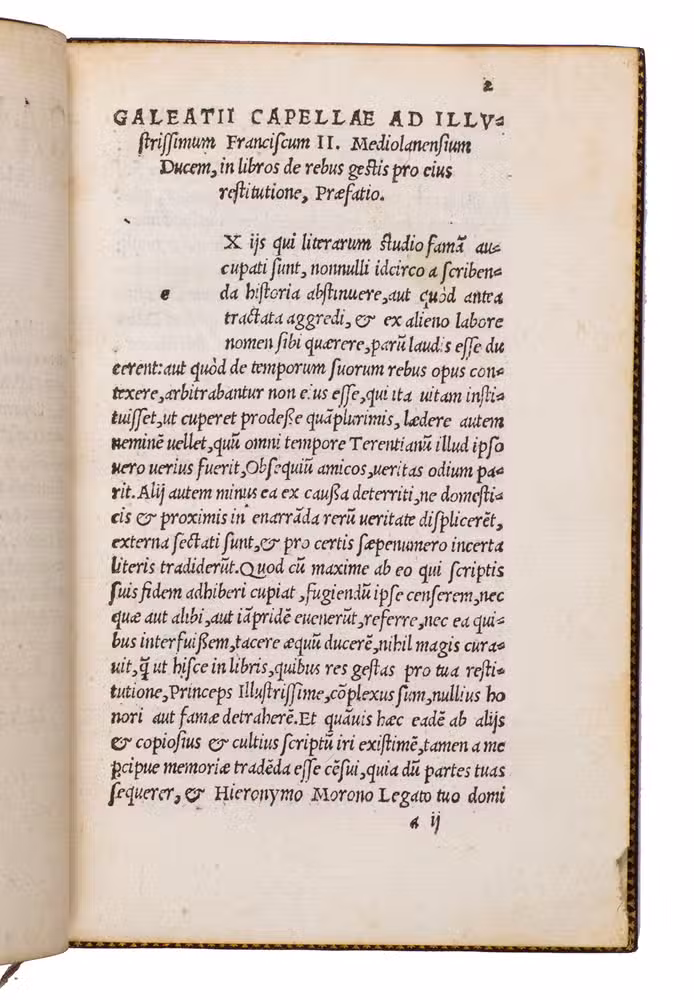 2
GALEATII CAPELLAE AD ILLV-
ſtriſſimum Franciſcum II. Mediolanenſium
Ducem, in libros de rebus geſtis pro eius
reſtitutione, Præfatio.
X ijs qui literarum ſtudio famã au-
cupati ſunt, nonnulli idcirco a ſcriben-
e da hiſtoria abſtinuere, aut quòd antea
tractata aggredi, & ex alieno labore
nomen ſibi quærere, parũ laudis eſſe du
cerent: aut quòd de temporum ſuorum rebus opus con-
texere, arbitrabantur non eius eſſe, qui ita uitam inſti-
tuiſſet, ut cuperet prodeſſe quãplurimis, lædere autem
neminẽ uellet, quũ omni tempore Terentianũ illud ipſo
uero uerius fuerit, Obſequiũ amicos, ueritas odium pa-
rit. Alij autem minus ea ex cauſſa deterriti, ne domeſti-
cis & proximis in enarrãda rerũ ueritate diſplicerẽt,
externa ſectati ſunt, & pro certis ſæpenumero incerta
literis tradiderũt. Quod cũ maxime ab eo qui ſcriptis
ſuis fidem adhiberi cupiat, fugiendũ ipſe cenſerem, nec
quæ aut alibi, aut iãpridẽ euenerũt, referre, nec ea qui-
bus interfuiſſem, tacere æquũ ducerẽ, nihil magis cura-
uit, q̃ ut hiſce in libris, quibus res geſtas pro tua reſti-
tutione, Princeps Illuſtriſſime, cõplexus ſum, nullius ho
nori aut famæ detraherẽ. Et quãuis hæc eadẽ ab alijs
& copioſius & cultius ſcriptũ iri exiſtimẽ, tamen a me
p̃cipue memoriæ tradẽda eſſe cẽſui, quia dũ partes tuas
ſequerer, & Hieronymo Morono Legato tuo domi
a ij